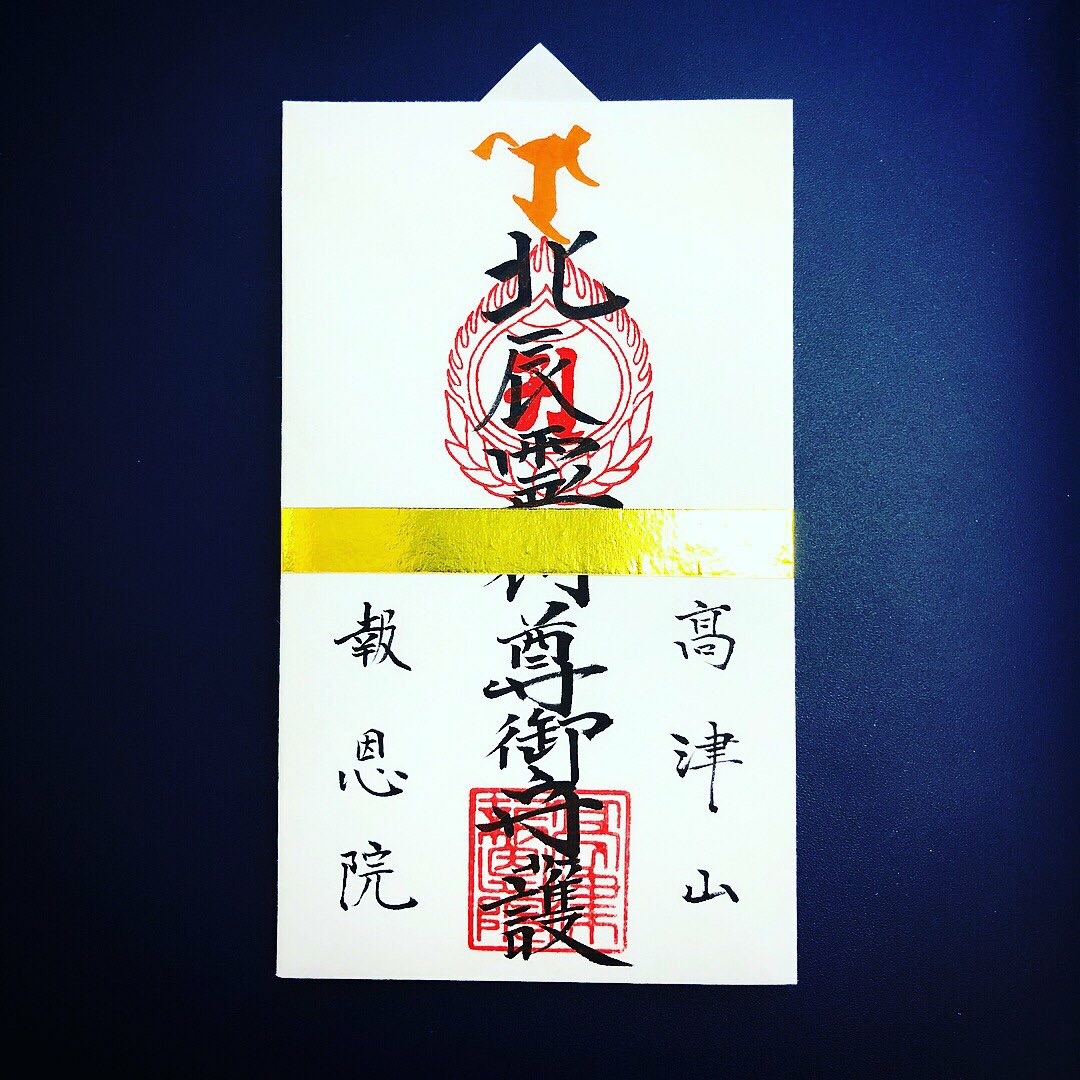 高津山
北辰霊符尊御守護
報恩院